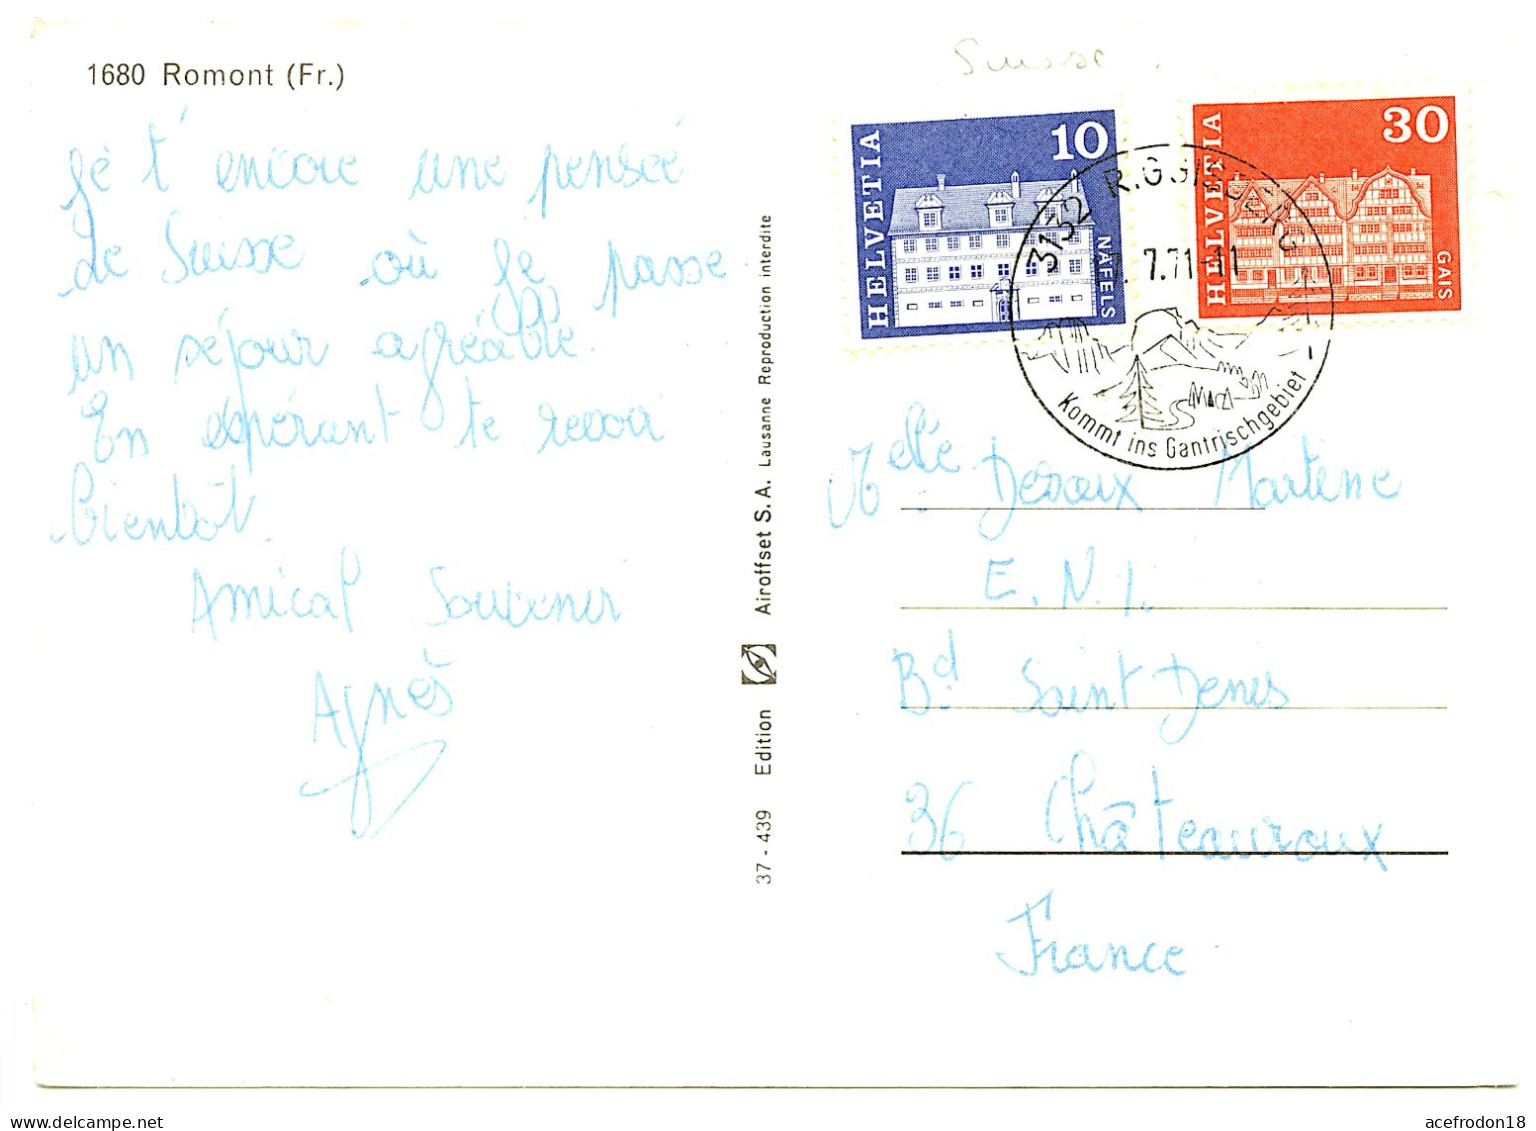 1680 Romont (Fr.)
Suisse
Je t' encore une pensée
de Suisse où je passe
un séjour agréable.
En espérant te revoir
bientôt.
Amical Souvenir
Agnès
37 - 439 Edition Airoffset S.A. Lausanne Reproduction interdite
HELVETIA 10 NÄFELS
HELVETIA 30 GAIS
3132 RIGGISBERG
7.71-11
Kommt ins Gantrischgebiet
Melle: Desaix Martine
E.N.I.
Bd. Saint Denis
36 Châteauroux
France
acefrodon18